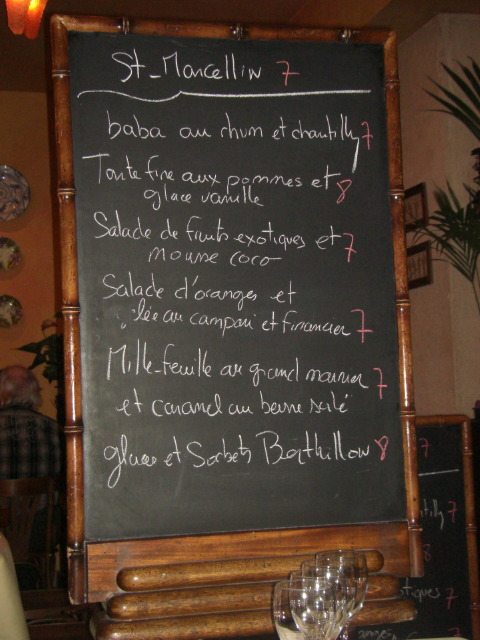 St-Marcellin 7
baba au rhum et chantilly 7
Tarte fine aux pommes et
glace vanille 8
Salade de fruits exotiques et 7
mousse coco
Salade d'oranges et
gelée au campari et financier 7
Mille-feuille au grand marnier 7
et caramel au beurre salé
glaces et Sorbets Berthillon 8
7
tilly 7
8
otiques 7